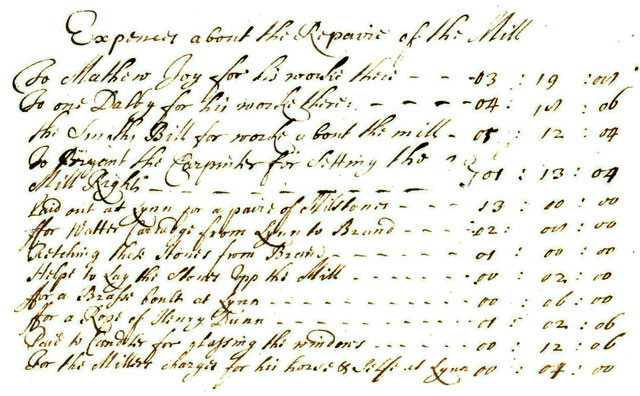 Expences about the Repaire of the Mill
To Mathew Joy for his worke there - - - 03 : 19 : 00
To one Dalby for his worke there - - - - 04 : 18 : 06
the Smiths Bill for worke about the mill - 05 : 12 : 04
To Bryant the Carpinter for Setting the
Mill Right - - - - - - - - 01 : 13 : 04
Laid out at Lynn for a paire of Milstones - - 13 : 00 : 00
ffor Watter Carradge from Lynn to Brand - - - 02 : 00 : 00
ffetching these Stones from Brand - - - - - 01 : 00 : 00
Helpe to Lay the Stones Upp the Mill - - - - 00 : 02 : 00
ffor a Brasse boult at Lynn - - - - - - - 00 : 06 : 00
ffor a Rope of Henry Dunn - - - - - - - 01 : 02 : 06
Paid to Candler for glassing the windows - - - - 00 : 12 : 06
For the Millers charges for his horse & Selfe at Lynn 00 : 04 : 00